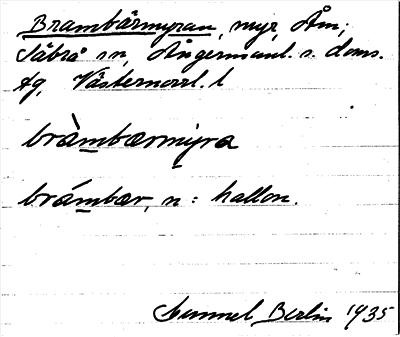 Brambärmyran, myr, Åm,
Säbrå sn, Ångermanl. s. doms.
tg, Västernorrl. l
bràmbærmyra
brámbær, n: hallon.
Gunnel Berlin 1935